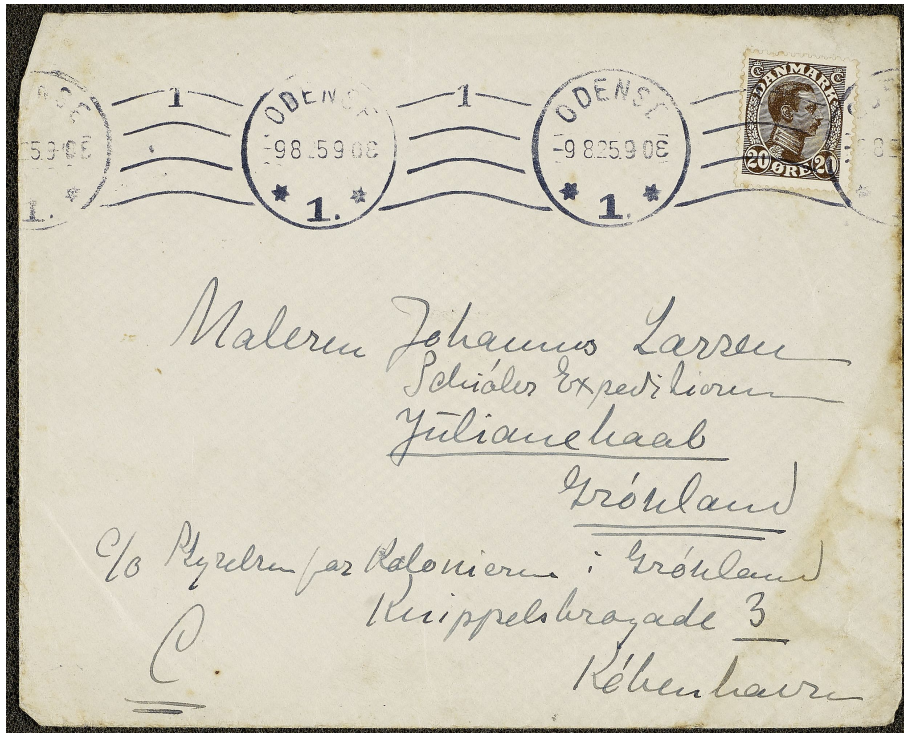 1 1
ODENSE ODENSE
-9 8.25.9 0E -9 8.25.9 0E
1. 1. 1.
DANMARK
20 ØRE 20
Maleren Johannes Larsen
Schiølers Expeditionen
Julianehaab
Grönland
c/o Styrelsen for Kolonierne i Grönland
Knippelsbrogade 3
C
København